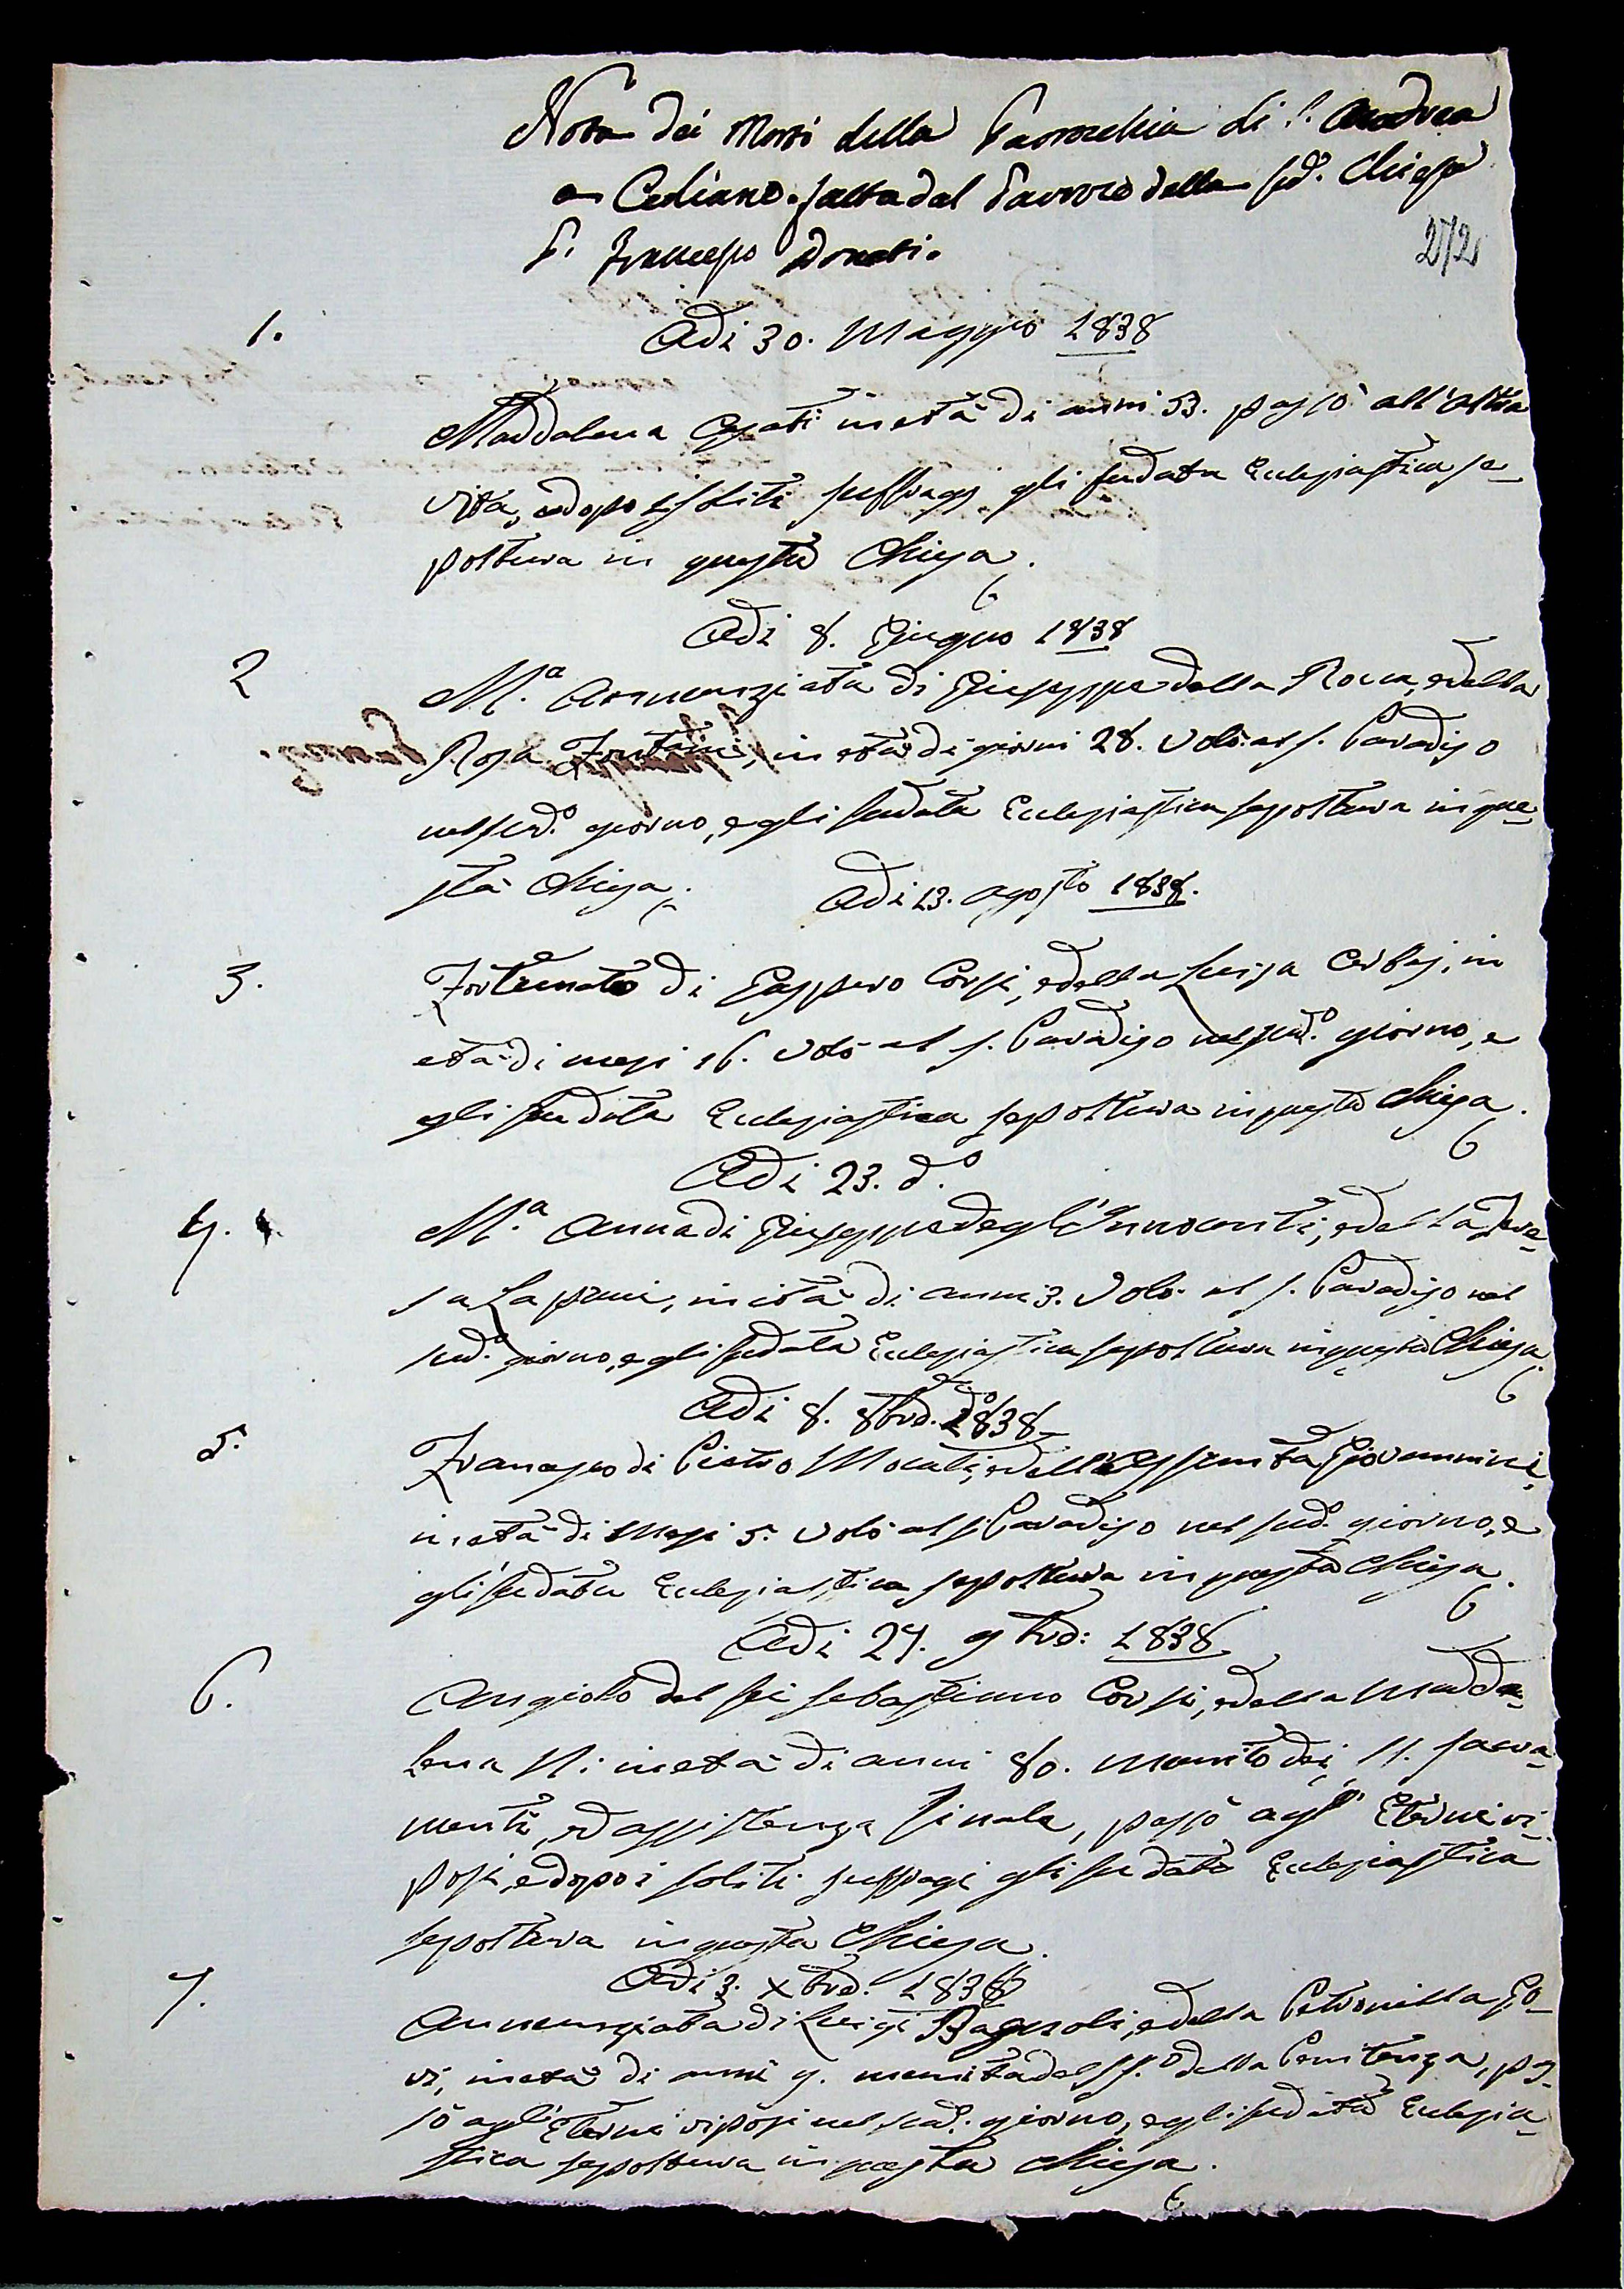 Nota dei Morti della Parrocchia di S. Andrea
a Celiano. fatta dal Parroco della sud.a Chiesa
P. Francesco Donati.
272
1.
Adi 30. Maggio 1838
Maddalena Agati in età di anni 53. passò all'altra
vita, e dopo i soliti suffragj gli fu data Eclesiastica se-
poltura in questa Chiesa.
Adi 8. Giugno 1838
2
M.a Annunziata di Giuseppe della Rocca, e della
Rosa in età di giorni 28. volò al S. Paradiso
nel sud.o giorno, e gli fu data Eclesiastica sepoltura in que-
sta Chiesa.
Adi 13. Agosto 1838.
3.
Fortunato di Gasppero Corsi, e della Luisa Cerbaj, in
età di mesi 16. volò al S. Paradiso nel sud.o giorno, e
gli fu data Eclesiastica sepoltura in questa Chiesa.
Adi 23. d.o
4.
M.a Anna di Giuseppe degl'Innocenti, e della Tere-
sa Lapini, in età di anni 3. volò al S. Paradiso nel
sud.o giorno, e gli fu data Eclesiastica sepoltura in questa Chiesa.
Adi 8. 8bre. 1838
5.
Francesco di Pietro Mocali, e dell'Assunta Giovannini,
in età di Mesi 5. volò al S. Paradiso nel sud.o giorno, e
gli fu data Eclesiastica sepoltura in questa Chiesa.
Adi 27. 9bre: 1838
6.
Angiolo del fu Sebastiano Corsi, e della Madda-
lena N: in età di anni 80. munito dei SS. Sacra-
menti, ed assistenza finale, passò agl'Eterni ri-
posi, e dopo i soliti suffragi gli fu data Eclesiastica
sepoltura in questa Chiesa.
Adi 3. Xbre. 1838
7.
Annunziata di Luigi Bagnoli, e della Petronilla Go-
ri, in età di anni 9. munita del S. della Penitenza, pas-
sò agl'Eterni riposi nel sud.o giorno, e gli fu data Eclesia-
stica sepoltura in questa Chiesa.